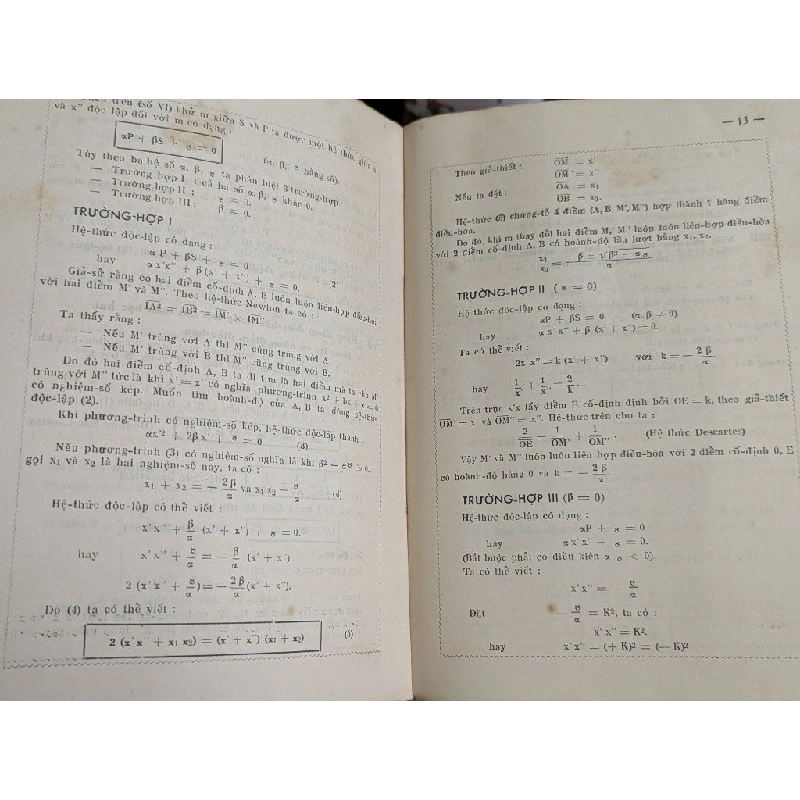 trên (số VI) khử m giữa S và P ta được một hệ thức giữa x'
và x" độc lập đối với m có dạng :
αP + βS + ε = 0 (α, β, ε hằng số).
Tùy theo ba hệ số α, β, ε ta phân biệt 3 trường-hợp
— Trường hợp I : cả ba số α, β, ε khác 0.
— Trường hợp II : ε = 0.
— Trường hợp III : β = 0.
TRƯỜNG-HỢP I
Hệ-thức độc-lập có dạng :
α P + βS + ε = 0
hay α x'x" + β (x' + x") + ε = 0. 2'
Giả-sử rằng có hai điểm cố-định A, B luôn luôn liên-hợp điều-hòa
với hai điểm M' và M". Theo hệ-thức Newton ta có :
IA² = IB² = IM' × IM"
Ta thấy rằng :
— Nếu M' trùng với A thì M" cũng trùng với A.
— Nếu M' trùng với B thì M" cũng trùng với B.
Do đó hai điểm cố-định A, B ta đi tìm là hai điểm mà tại đó M'
trùng với M" tức là khi x' = x" có nghĩa phương-trình x² + bx + c = 0
có nghiệm-số kép. Muốn tìm hoành-độ của A, B ta dùng hệ-thức
độc-lập (2).
Khi phương-trình có nghiệm-số kép, hệ-thức độc-lập thành :
αx² + 2βx + ε = 0 (3)
Nếu phương-trình (3) có nghiệm-số nghĩa là khi β² − εα > 0,
gọi x₁ và x₂ là hai nghiệm-số này, ta có :
x₁ + x₂ = − 2β/α và x₁x₂ = ε/α (4)
Hệ-thức độc-lập có thể viết :
x'x" + β/α (x' + x") + ε/α = 0.
hay x'x" + ε/α = − β/α (x' + x")
2 (x'x" + ε/α) = − 2β/α (x' + x").
Do (4) ta có thể viết :
2 (x'x" + x₁x₂) = (x' + x") (x₁ + x₂) (5)
— 13 —
Theo giả-thiết : OM' = x'
OM" = x"
Nếu ta đặt : OA = x₁
OB = x₂.
Hệ-thức (5) chứng-tỏ 4 điểm (A, B, M', M") hợp thành 1 hàng điểm
điều-hòa.
Do đó, khi m thay đổi hai điểm M', M" luôn luôn liên-hợp điều-hòa
với 2 điểm cố-định A, B có hoành-độ lần lượt bằng x₁, x₂.
x₁
x₂ = − β ± √β² − αε / α
TRƯỜNG-HỢP II (ε = 0)
Hệ-thức độc-lập có dạng :
αP + βS = 0 (α, β ≠ 0)
hay α x'x" + β (x' + x") = 0.
Ta có thể viết :
2x'x" = k (x' + x") với k = − 2β/α
hay 1/x' + 1/x" = 2/k.
Trên trục x'x lấy điểm E cố-định định bởi OE = k, theo giả-thiết
OM' = x' và OM" = x". Hệ-thức trên cho ta :
2/OE = 1/OM' + 1/OM". (Hệ thức Descartes)
Vậy M' và M" luôn luôn liên hợp điều-hòa với 2 điểm cố-định 0, E
có hoành-độ bằng 0 và k = − 2β/α
TRƯỜNG-HỢP III (β = 0)
Hệ-thức độc-lập có dạng :
αP + ε = 0
hay αx'x" + ε = 0.
(Bắt buộc phải có điều kiện α ε < 0).
Ta có thể viết :
x'x" = − ε/α
Đặt − ε/α = K², ta có :
x'x" = K².
hay x'x" = (+ K)² = (− K)²